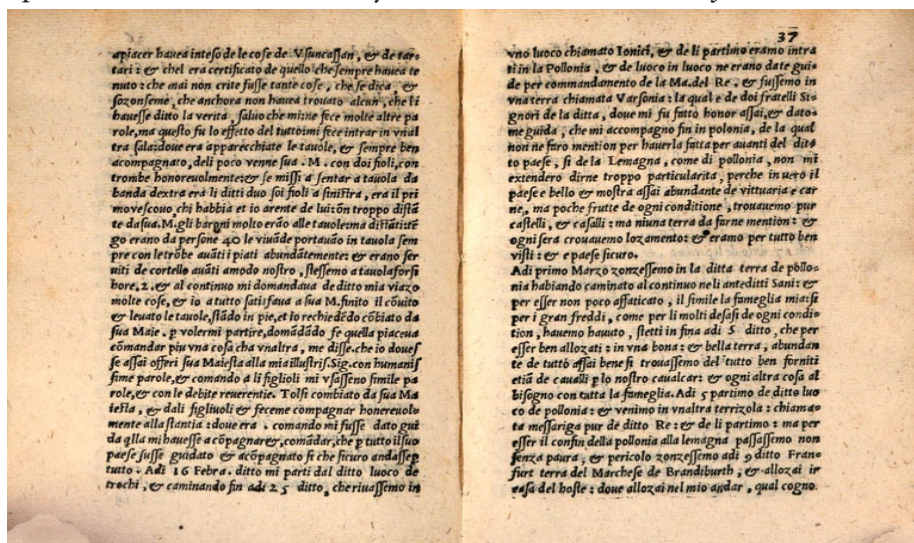 apiacer hauea inteso de le cose de Vsuncassan, & de tar-
tari: & chel era certificato di quello che sempre hauea te
nuto: che mai non crite fusse tante cose, che se dica, &
sozonseme, che anchora non hauea trouato alcun, che li
hauesse ditto la verita, saluo che mi: ne fece molte altre pa
role, ma questo fu lo effetto del tutto: mi fece intrar in vnal
tra sala: doue era apparecchiate le tauole, & sempre ben
acompagnato, deli poco venne sua. M. con doi fioli, con
trombe honoreuolmente: & se missi a sentar a tauola da
banda dextra era li ditti duo soi fioli a sinistra, era il pri
mo vescouo, chi habbia et io arente de lui: õn troppo distã
te da sua. M. gli baroni molto erão alle tauole: ma distãti: te
go erano da persone 40 le viuãde portauão in tauola sem
pre con le trõbe auãti i piati abundãtemente: & erano ser
uiti de cortello auãti a modo nostro, stessemo a tauola forsi
hore. 2. & al continuo mi domandaua de ditto mia viazo
molte cose, & io a tutto satisfaua a sua M. finito il cõuito
& leuato le tauole, stãdo in pie, et io rechiedẽdo cõbiato da
sua Maie. p volermi partire, domãdãdo se quella piaceua
cõmandar piu vna cosa cha vnaltra, me disse. che io doues
se assai offeri sua Maiesta alla mia illustris. Sig. con humanis
sime parole, & comando a li figlioli mi vsasseno simile pa
role, & con le debite reuerentie. Tolsi combiato da sua Ma
iesta, & dali figliuoli & feceme compagnar honoreuole
mente alla stantia: doue era. comando mi fusse dato gui
da qlla mi hauesse a cõpagnare, comãdar, che p tutto il suo
paese fusse guidato & acõpagnato si che sicuro andasse p
tutto. Adi 16 Febra. ditto mi parti dal ditto luoco de
trochi, & caminando fin adi 25 ditto, che riuassemo in
37
vno luoco chiamato Ionici, & de li partimo eramo intra
ti in la Pollonia, & de luoco in luoco ne erano date gui-
de per commandamento de la Ma. del Re. & fussemo in
vna terra chiamata Varsonia: la qual e de doi fratelli Si-
gnori de la ditta, doue mi fu fatto honor assai, & dato-
me guida, che mi accompagno fin in polonia, de la qual
non ne faro mention per hauerla fatta per auanti del dit-
to paese, si de la Lemagna, come di pollonia, non mi
extendero dirne troppo particularita, perche in uero il
paese e bello & mostra assai abundante de vittuaria e car
ne, ma poche frutte de ogni conditione, trouauemo pur
castelli, & casalli: ma niuna terra da farne mention: &
ogni sera trouauemo lozamento: & eramo per tutto ben
visti: & e paese sicuro.
Adi primo Marzo zonzessemo in la ditta terra de pollo-
nia habiando caminato al continuo ne li anteditti Sani: &
per esser non poco affaticato, il simile la fameglia mia: si
per i gran freddi, come per li molti desasi de ogni condi-
tion, hauemo hauuto, stetti in fina adi 5 ditto, che per
esser ben allozati: in vna bona: & bella terra, abundan
te de tutto assai bene si trouassemo del tutto ben forniti
etiã de caualli p lo nostro caualcar: & ogni altra cosa al
bisogno con tutta la fameglia. Adi 5 partimo de ditto luo
co de pollonia: & venimo in vnaltra terrizola: chiama-
ta messariga pur de ditto Re: & de li partimo: ma per
esser il confin della pollonia alla lemagna passassemo non
senza paura, & pericolo zonzessemo adi 9 ditto Fran-
furt terra del Marchese de Brandiburth, & allozai in
casa del hoste: doue allozai nel mio andar, qual cogno